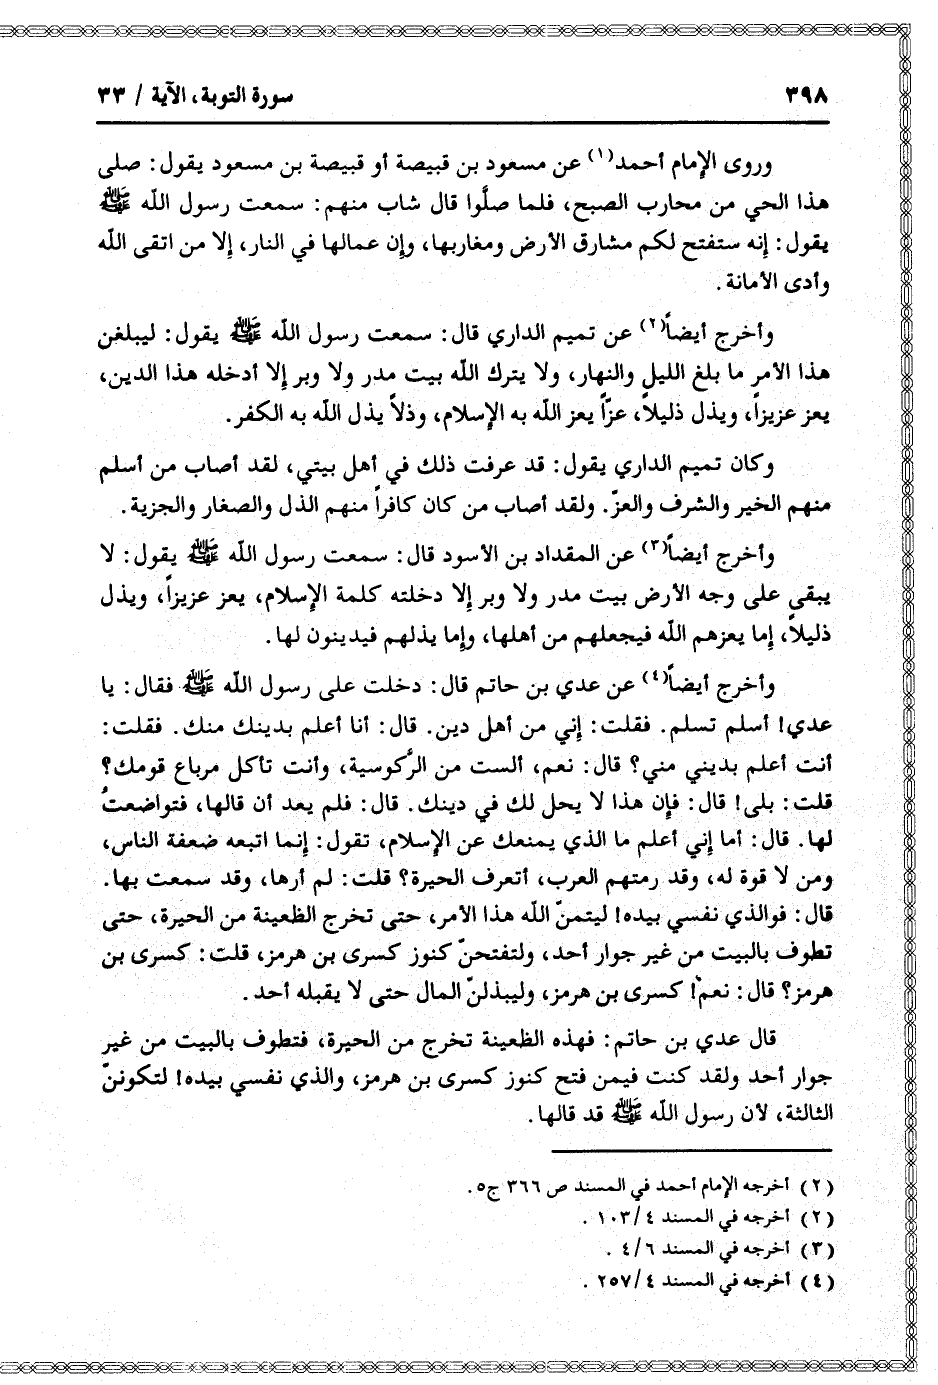 ٣٩٨ سورة التوبة، الآية / ٣٣
وروى الإمام أحمد(١) عن مسعود بن قبيصة أو قبيصة بن مسعود يقول: صلى
هذا الحي من محارب الصبح، فلما صلَّوا قال شاب منهم: سمعت رسول الله ﷺ
يقول: إنه ستفتح لكم مشارق الأرض ومغاربها، وإن عمالها في النار، إلا من اتقى الله
وأدى الأمانة.
وأخرج أيضاً(٢) عن تميم الداري قال: سمعت رسول الله ﷺ يقول: ليبلغن
هذا الأمر ما بلغ الليل والنهار، ولا يترك الله بيت مدر ولا وبر إلا أدخله هذا الدين،
يعز عزيزاً، ويذل ذليلاً، عزّاً يعز الله به الإسلام، وذلاً يذل الله به الكفر.
وكان تميم الداري يقول: قد عرفت ذلك في أهل بيتي، لقد أصاب من أسلم
منهم الخير والشرف والعزّ. ولقد أصاب من كان كافراً منهم الذل والصغار والجزية.
وأخرج أيضاً(٣) عن المقداد بن الأسود قال: سمعت رسول الله ﷺ يقول: لا
يبقى على وجه الأرض بيت مدر ولا وبر إلا دخلته كلمة الإسلام، يعز عزيزاً، ويذل
ذليلاً، إما يعزهم الله فيجعلهم من أهلها، وإما يذلهم فيدينون لها.
وأخرج أيضاً(٤) عن عدي بن حاتم قال: دخلت على رسول الله ﷺ فقال: يا
عدي! أسلم تسلم. فقلت: إني من أهل دين. قال: أنا أعلم بدينك منك. فقلت:
أنت أعلم بديني مني؟ قال: نعم، ألست من الرَّكوسية، وأنت تأكل مرباع قومك؟
قلت: بلى! قال: فإن هذا لا يحل لك في دينك. قال: فلم يعد أن قالها، فتواضعتُ
لها. قال: أما إني أعلم ما الذي يمنعك عن الإسلام، تقول: إنما اتبعه ضعفة الناس،
ومن لا قوة له، وقد رمتهم العرب، أتعرف الحيرة؟ قلت: لم أرها، وقد سمعت بها.
قال: فوالذي نفسي بيده! ليتمنّ الله هذا الأمر، حتى تخرج الظعينة من الحيرة، حتى
تطوف بالبيت من غير جوار أحد، ولتفتحنّ كنوز كسرى بن هرمز، قلت: كسرى بن
هرمز؟ قال: نعمْ! كسرى بن هرمز، وليبذلنّ المال حتى لا يقبله أحد.
قال عدي بن حاتم: فهذه الظعينة تخرج من الحيرة، فتطوف بالبيت من غير
جوار أحد ولقد كنت فيمن فتح كنوز كسرى بن هرمز، والذي نفسي بيده! لتكوننّ
الثالثة، لأن رسول الله ﷺ قد قالها.
(٢) أخرجه الإمام أحمد في المسند ص ٣٦٦ ج٥.
(٢) أخرجه في المسند ١٠٣/٤ .
(٣) أخرجه في المسند ٤/٦ .
(٤) أخرجه في المسند ٢٥٧/٤ .